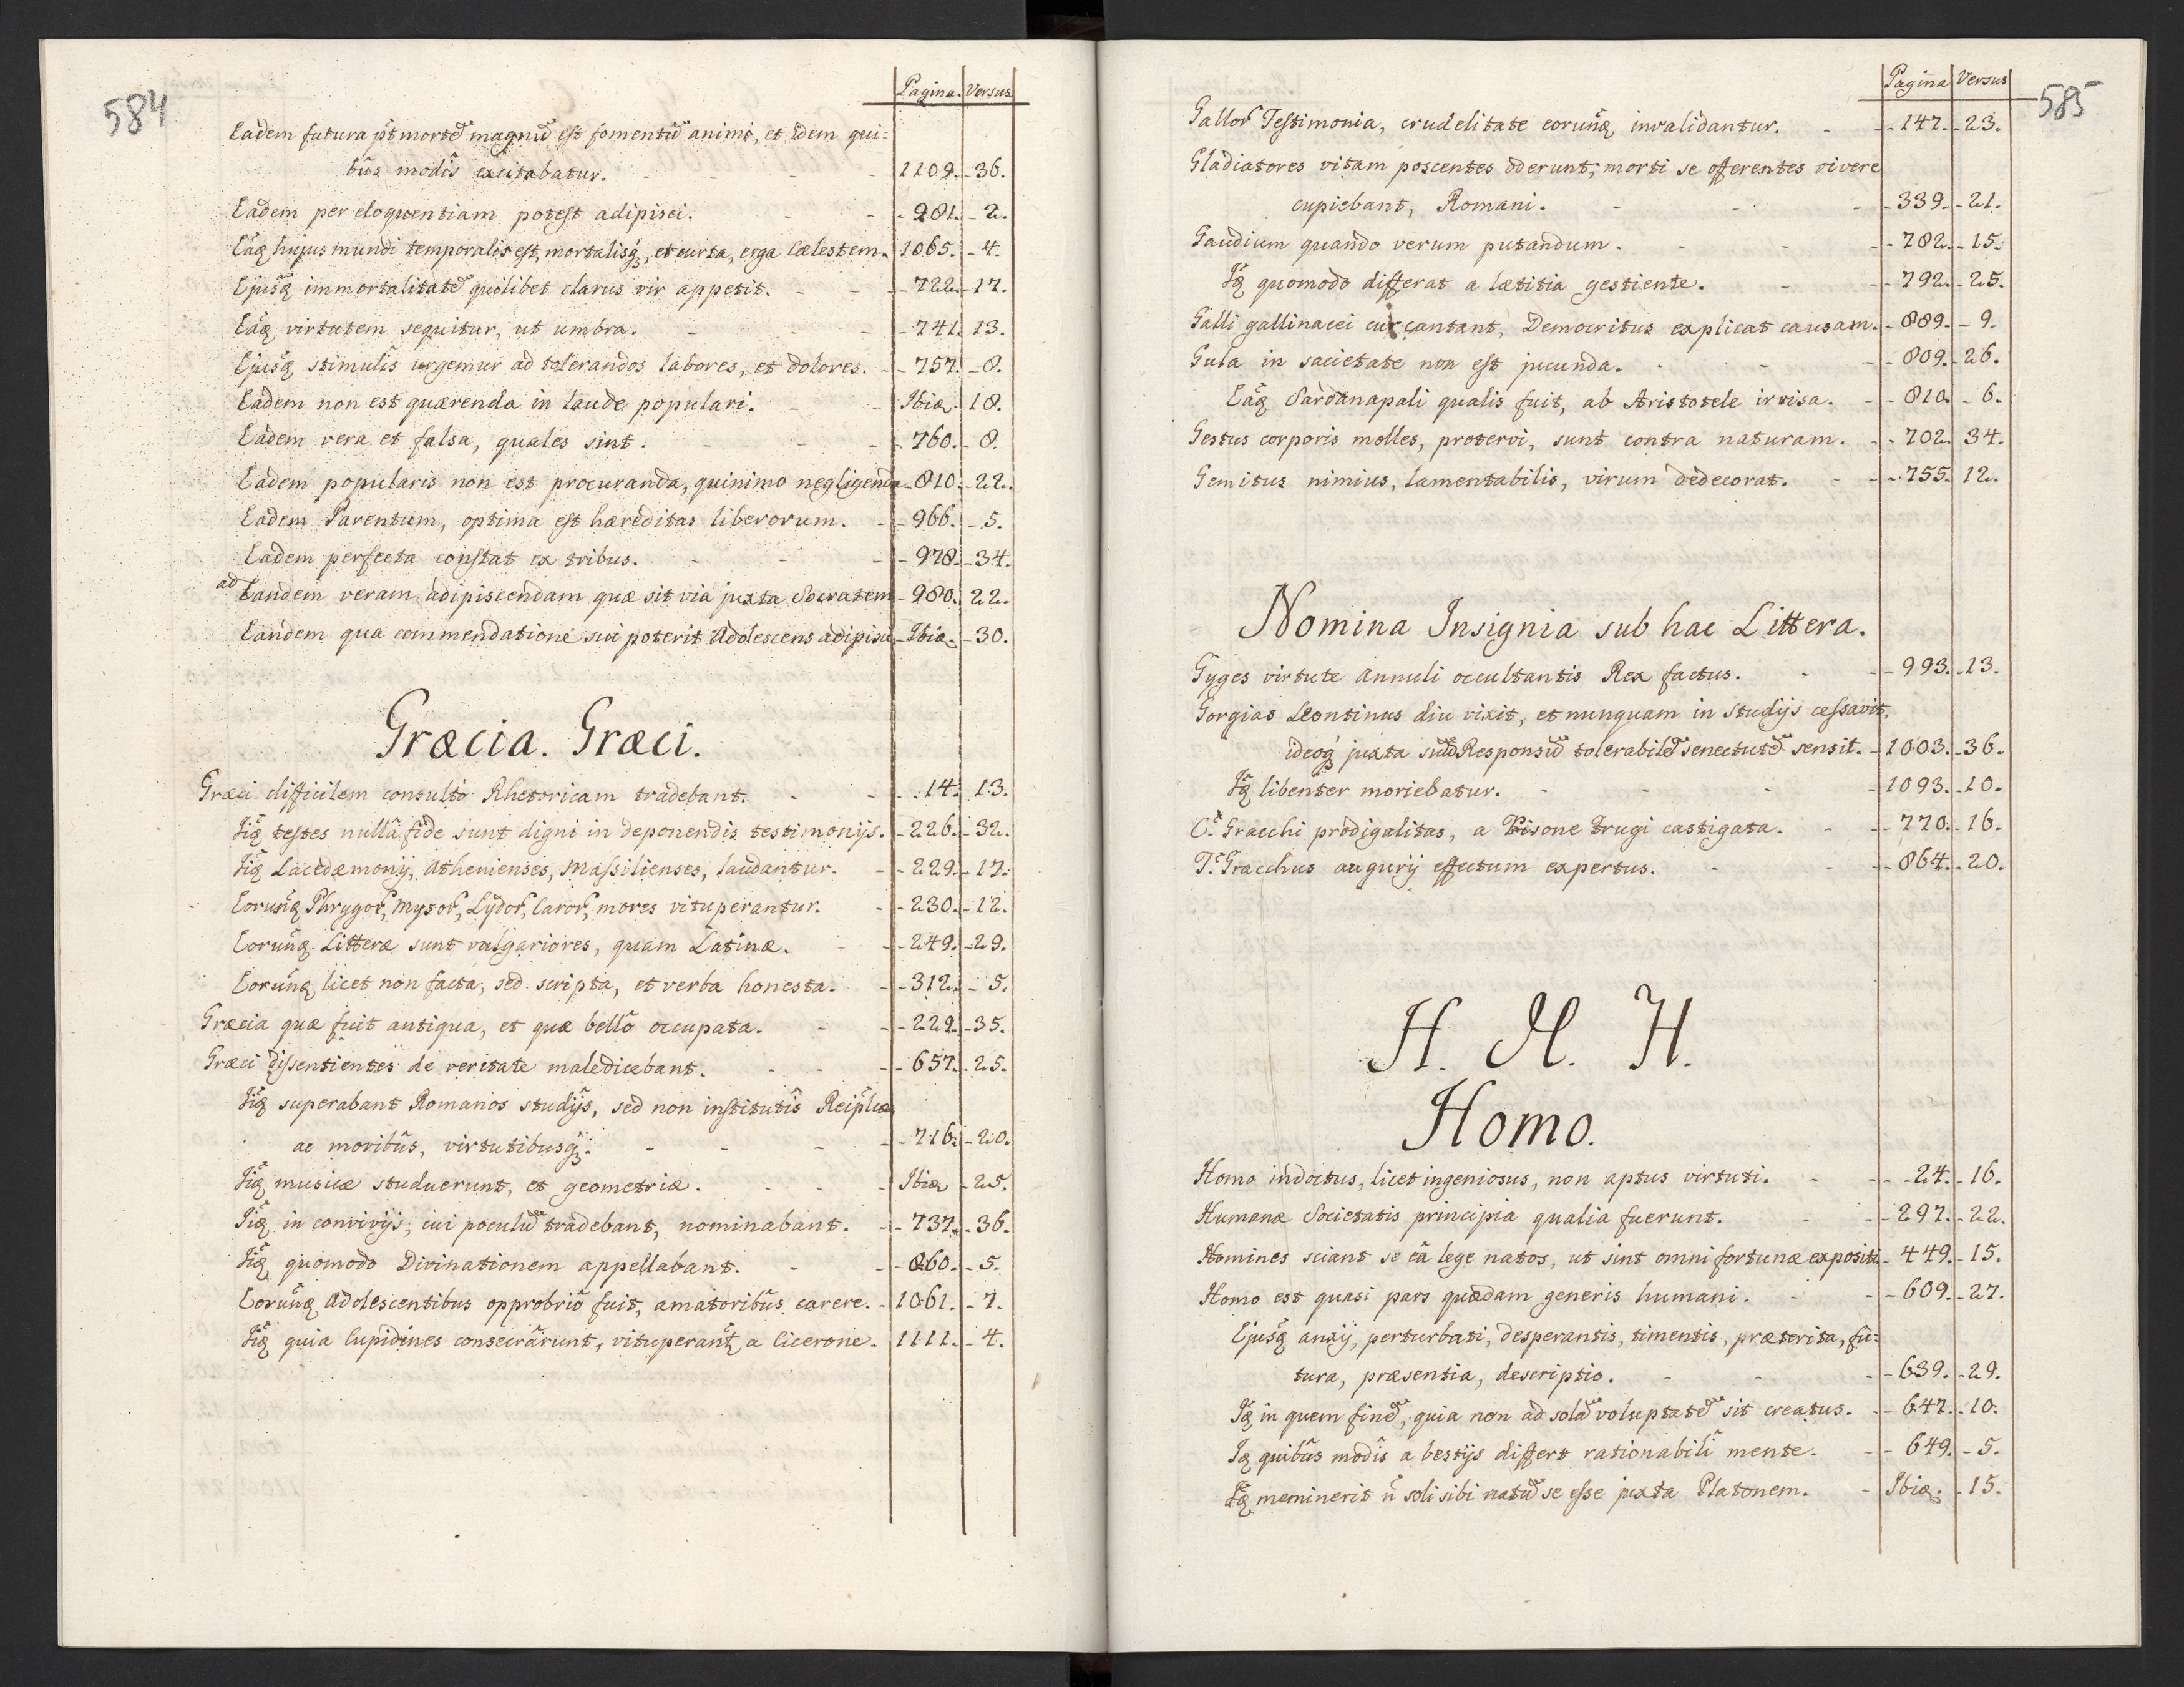 584
Pagina. Versus
Eadem futura p̃t mortẽ magnũ est fomentũ animi, et Idem qui=
bũs modĩs excitabatur. 1109. 36.
Eadem per eloquentiam potest adipisci. 981. 2.
Eãq hujus mundi temporalis est, mortalisq, et curta, erga Cælestem. 1065. 4.
Ejusq̃ immortalitatẽ quilibet clarus vir appetit. 722. 17.
Eãq virtutem sequitur, ut umbra. 741. 13.
Ejusq̃ stimulĩs urgemur ad tolerandos labores, et dolores. 757. 8.
Eadem non est quærenda in laude populari. Ibiq. 18.
Eadem vera et falsa, quales sint. 760. 8.
Eadem popularis non est procuranda, quinimo negligenda 810. 22.
Eadem Parentum, optima est hæreditas liberorum. 966. 5.
Eadem perfecta constat ex tribus. 978. 34.
ad Eandem veram adipiscendam quæ sit via juxta Socratem 980. 22.
Eandem qua commendatione sui poterit Adolescens adipisci Ibiq. 30.
Græcia. Græci.
Græci difficilem consulto Rhetoricam tradebant. 14. 13.
Iiq̃ testes nullâ fide sunt digni in deponendis testimonijs. 226. 32.
Iiq̃ Lacedæmonij, Athenienses, Massilienses, laudantur. 229. 17.
Eorunq̃ Phrygor, Mysor, Lydor, Caror, mores vituperantur. 230. 12.
Eorunq̃ Litteræ sunt vulgariores, quam Latinæ. 249. 29.
Eorunq̃ licet non facta, sed scripta, et verba honesta. 312. 5.
Græcia quæ fuit antiqua, et quæ bellô occupata. 229. 35.
Græci dissentientes de veritate maledicebant. 657. 25.
Iiq̃ superabant Romanos studijs, sed non institutîs Reip̃licæ
ac moribũs, virtutibusq. 716. 20.
Iiq̃ musicæ studuerunt, et geometriæ. Ibiq 25.
Iiq̃ in convivijs, cui poculũ tradebant, nominabant. 737. 36.
Iiq̃ quomodo Divinationem appellabant. 860. 5.
Eorunq̃ Adolescentibus opprobriô fuit, amatoribũs carere. 1061. 7.
Iiq̃ quia Cupidines consecrârunt, vituperant̃ a Cicerone. 1111. 4.
585
Pagina Versus
Gallor Testimonia, crudelitate eorunq̃ invalidantur. 147. 23.
Gladiatores vitam poscentes oderunt, morti se offerentes vivere
cupiebant, Romani. 339. 21.
Gaudium quando verum putandum. 782. 15.
Iq̃ quomodo differat a lætitia gestiente. 792. 25.
Galli gallinacei cur cantant, Democritus explicat causam. 889. 9.
Gula in sacietate non est jucunda. 809. 26.
Eãq Sardanapali qualis fuit, ab Aristotele irrisa. 810. 6.
Gestus corporis molles, protervi, sunt contra naturam. 702. 34.
Gemitus nimius, lamentabilis, virum dedecorat. 755. 12.
Nomina Insignia sub hac Littera.
Gyges virtute Annuli occultantis Rex factus. 993. 13.
Gorgias Leontinus diu vixit, et nunquam in studijs cessavit,
ideoq juxta suũ Responsũ tolerabilẽ senectutẽ sensit. 1003. 36.
Iq̃ libenter moriebatur. 1093. 10.
C. Gracchi prodigalitas, a Pisone Frugi castigata. 770. 16.
T. Gracchus augurij effectum expertus. 864. 20.
H. H. H.
Homo.
Homo indoctus, licet ingeniosus, non aptus virtuti. 24. 16.
Humanæ Societatis principia qualia fuerunt. 297. 22.
Homines sciant se eâ lege natos, ut sint omni fortunæ expositi 449. 15.
Homo est quasi pars quædam generis humani. 609. 27.
Ejusq̃ anxij, perturbati, desperantis, timentis, præterita, fu=
tura, præsentia, descriptio. 639. 29.
Iq̃ in quem finẽ, quia non ad solã voluptatẽ sit creatus. 647. 10.
Iq̃ quibũs modĩs a bestijs differt rationabilî mente. 649. 5.
Iq̃ meminerit ñ soli sibi natũ se esse juxta Platonem. Ibiq. 15.